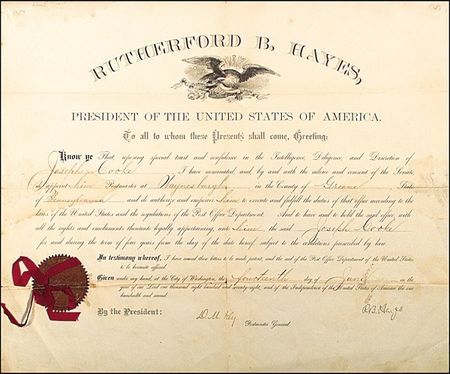 RUTHERFORD B. HAYES,
PRESIDENT OF THE UNITED STATES OF AMERICA.
To all to whom these Presents shall come, Greeting:
Know ye That, reposing special trust and confidence in the Intelligence, Diligence, and Discretion of
Joseph Cooke I have nominated and, by and with the advice and consent of the Senate
do appoint him Postmaster at Waynesburgh in the County of Greene State
of Pennsylvania and do authorize and empower him to execute and fulfil the duties of that office according to the
laws of the United States and the regulations of the Post Office Department. And to have and to hold the said office, with
all the rights and emoluments thereunto legally appertaining, unto him the said Joseph Cooke
for and during the term of four years from the day of the date hereof, subject to the conditions prescribed by law.
In testimony whereof, I have caused these letters to be made patent, and the seal of the Post Office Department of the United States
to be hereunto affixed.
Given under my hand, at the City of Washington, the fourteenth day of June in the
year of our Lord one thousand eight hundred and seventy-eight, and of the Independence of the United States of America the one
hundredth and second.
By the President:
R.B. Hayes
D. M. Key
Postmaster General.